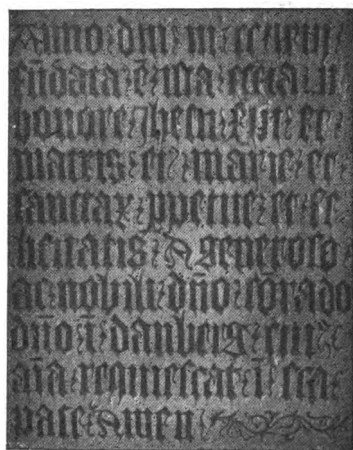 Anno dni m cc
fūdata ē ista eccīa ī
honore ihesu xpi et
matris ei marie et
sanctaꝝ ppetue et fe
licitatis A generoso
ac nobili dn̄o cōrado
dn̄o ī danberg cui
aīa requiescat ī sca
pace Amen